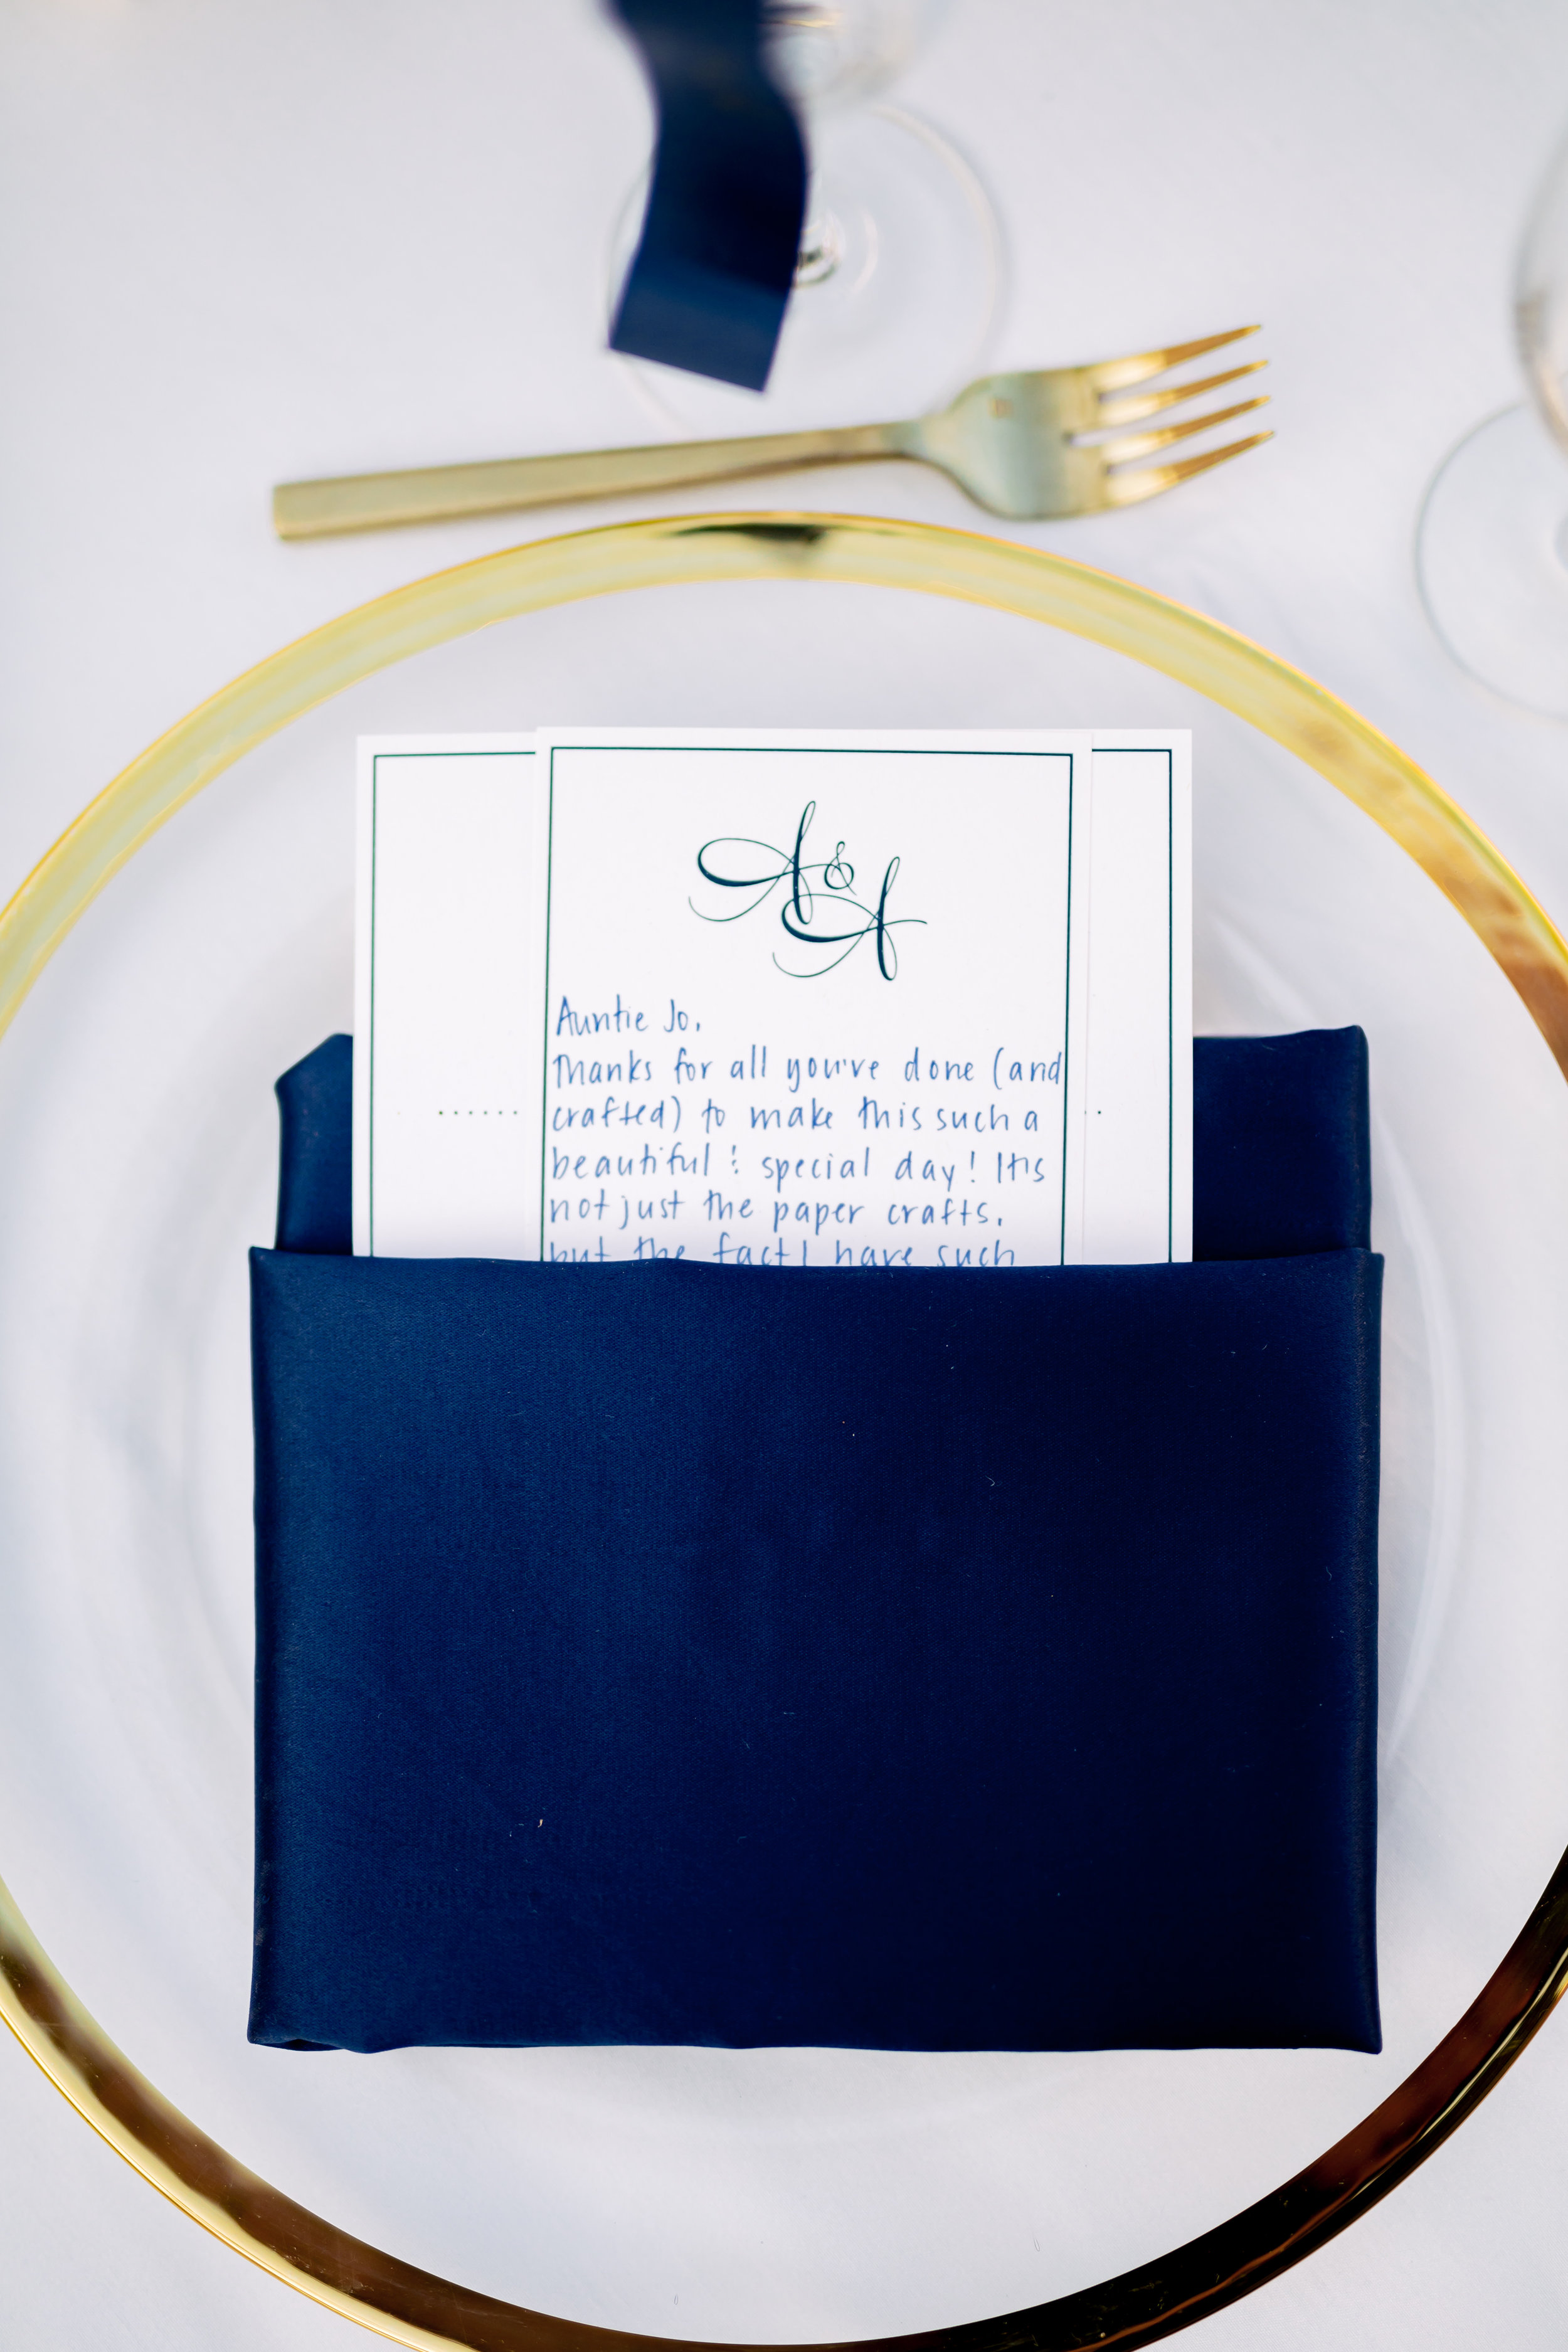 A & A
Auntie Jo,
Thanks for all you've done (and
crafted) to make this such a
beautiful & special day! It's
not just the paper crafts,
but the fact I have such